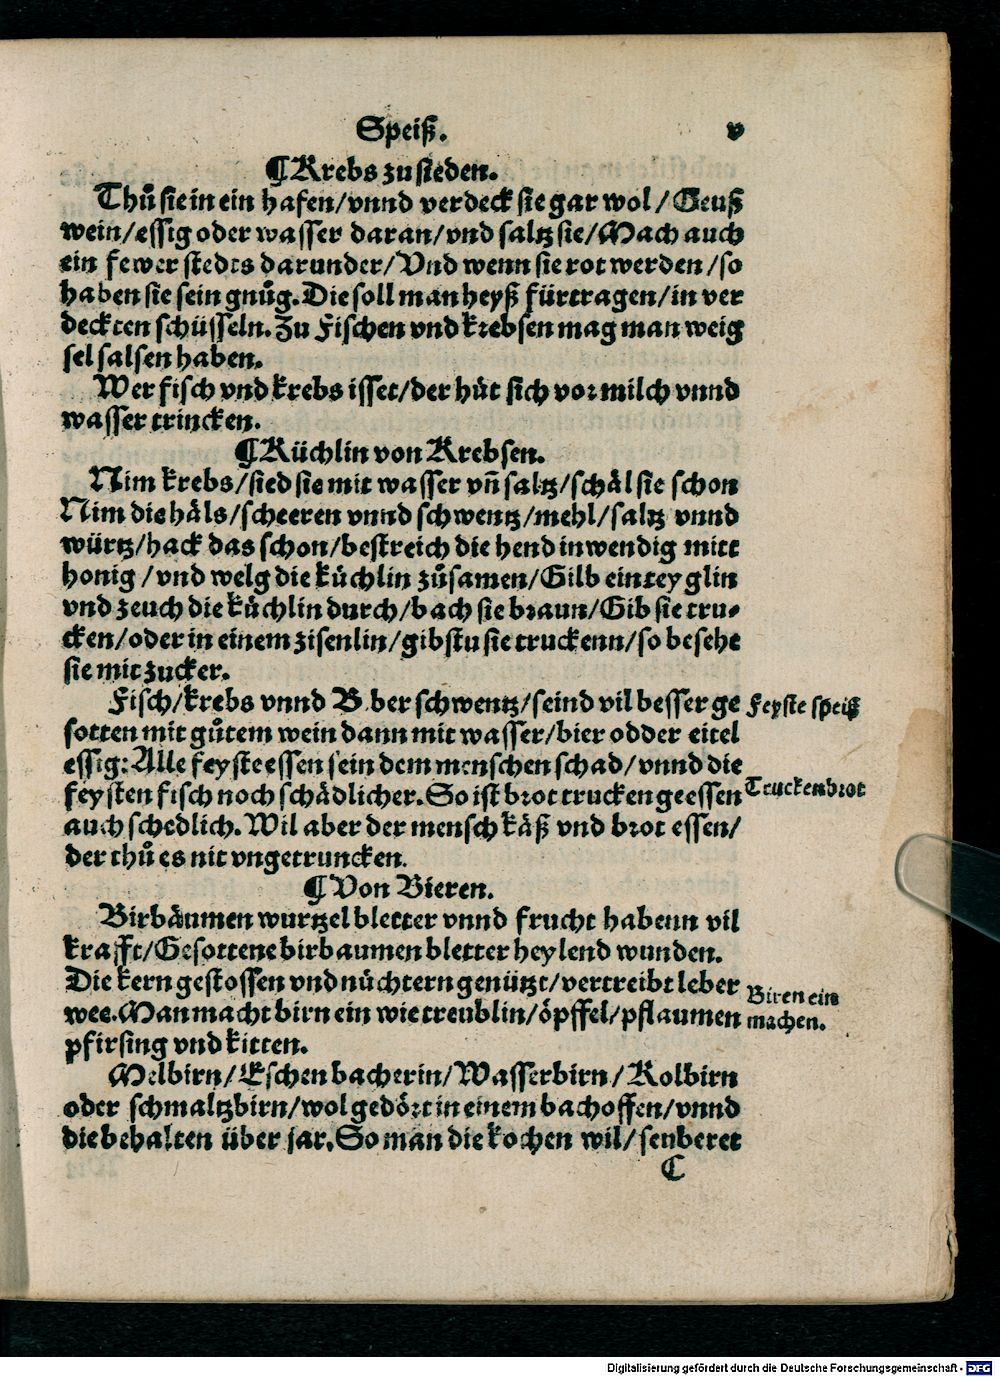 Speiß. v
¶Krebs zu sieden.
Thů sie in ein hafen/vnnd verdeck sie gar wol/Geuß
wein/essig oder wasser daran/vnd saltz sie/Mach auch
ein fewer stedts darunder/Vnd wenn sie rot werden/so
haben sie sein gnůg. Die soll man heyß fürtragen/in ver
deckten schüsseln. Zu Fischen vnd krebsen mag man weig
sel salsen haben.
Wer fisch vnd krebs isset/der hüt sich vor milch vnnd
wasser trincken.
¶Küchlin von Krebsen.
Nim krebs/sied sie mit wasser vñ saltz/schäl sie schon
Nim die häls/scheeren vnnd schwentz/mehl/saltz vnnd
würtz/hack das schon/bestreich die hend inwendig mitt
honig/vnd welg die küchlin zůsamen/Gilb ein teyglin
vnd zeuch die küchlin durch/bach sie braun/Gib sie tru-
cken/oder in einem zisenlin/gibstu sie truckenn/so besehe
sie mit zucker.
Fisch/krebs vnnd B ber schwentz/seind vil besser ge
sotten mit gůtem wein dann mit wasser/bier odder eitel
essig: Alle feyste essen sein dem menschen schad/vnnd die
feysten fisch noch schädlicher. So ist brot trucken geessen
auch schedlich. Wil aber der mensch käß vnd brot essen/
der thů es nit vngetruncken.
Feyste speiß
Truckenbrot
¶Von Bieren.
Birbäumen wurtzel bletter vnnd frucht habenn vil
krafft/Gesottene birbaumen bletter heylend wunden.
Die kern gestossen vnd nüchtern genützt/vertreibt leber
wee. Man macht birn ein wie treublin/öpffel/pflaumen
pfirsing vnd kitten.
Biren ein
machen.
Melbirn/Eschenbacherin/Wasserbirn/Kolbirn
oder schmaltzbirn/wol gedört in einem bachoffen/vnnd
die behalten über jar. So man die kochen wil/senberet
C
Digitalisierung gefördert durch die Deutsche Forschungsgemeinschaft - DFG